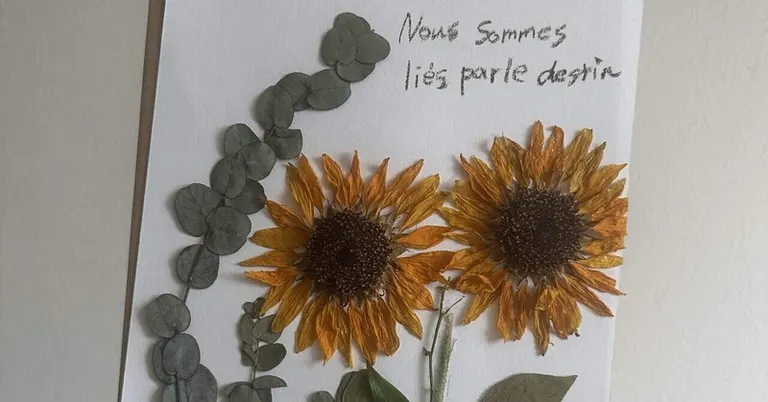 Nous sommes
liés par le destin